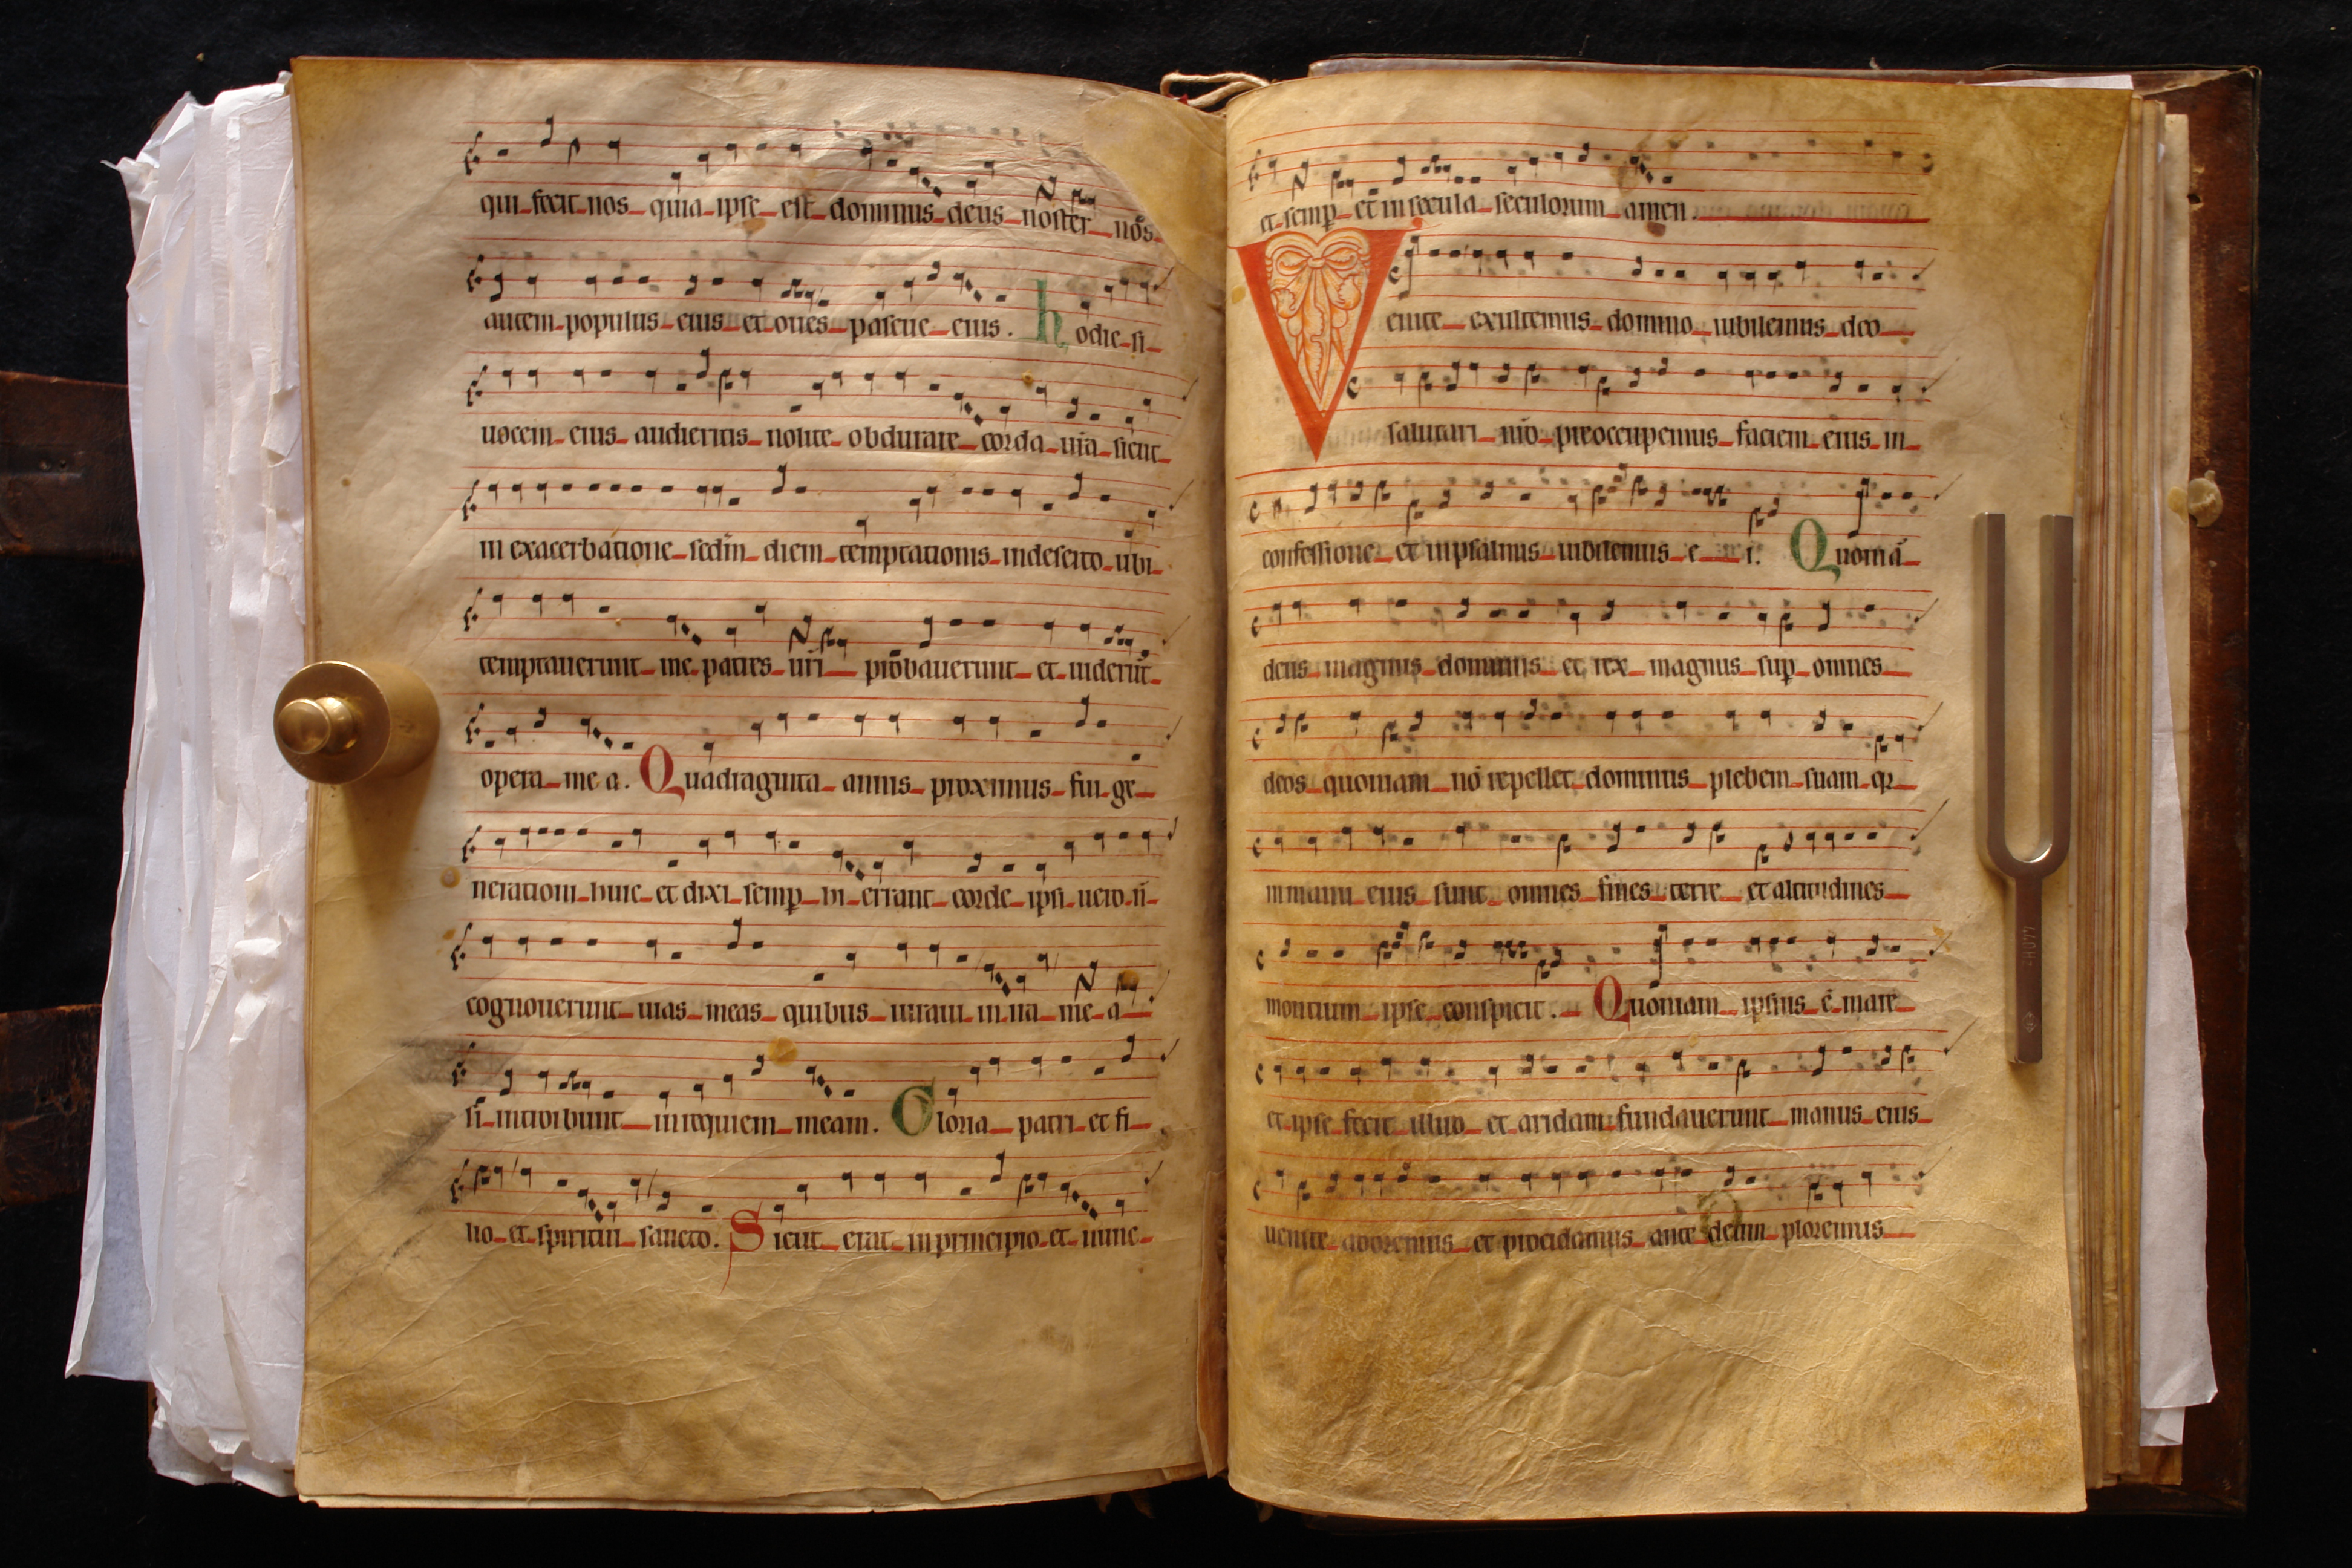 qui fecit nos quia ipse est dominus deus noster nōs
autem populus eius et oues pascue eius. hodie si
uocem eius audieritis nolite obdurare corda ur̄a sicut
in exacerbatione scd̄m diem temptationis in deserto ubi
temptauerunt me patres ur̄i probauerunt et uiderūt
opera mea. Quadraginta annis proximus fui ge
nerationi huic et dixi semꝑ hi errant corde ipsi uero n̄
cognouerunt uias meas quibus iuraui in ira mea
si introibunt in requiem meam. Gloria patri et fi
lio et spiritui sancto. Sicut erat in principio et nunc
et semꝑ et in secula seculorum amen.
Venite exultemus domino iubilemus deo
salutari nr̄o preoccupemus faciem eius in
confessione et in psalmis iubilemus ei. Quoniā
deus magnus dominus et rex magnus suꝑ omnes
deos quoniam nō repellet dominus plebem suam qr
in manu eius sunt omnes fines terre et altitudines
montium ipse conspicit. Quoniam ipsius ē mare
et ipse fecit illud et aridam fundauerunt manus eius
uenite adoremus et procidamus ante deum ploremus